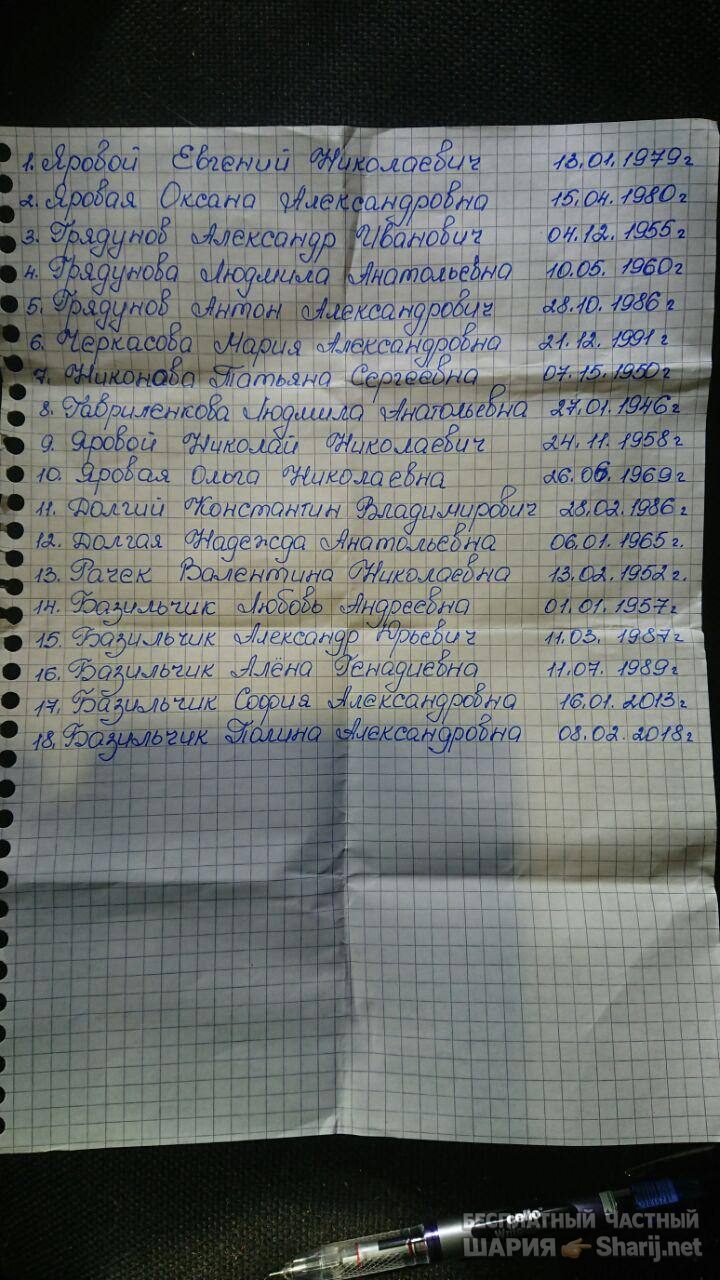 1. Яровой Евгений Николаевич 13.01.1979г
2. Яровая Оксана Александровна 15.04.1980г
3. Грядунов Александр Иванович 04.12.1955г
4. Грядунова Людмила Анатольевна 10.05.1960г
5. Грядунов Антон Александрович 28.10.1986г
6. Черкасова Мария Александровна 21.12.1991г
7. Никонова Татьяна Сергеевна 07.15.1950г
8. Гавриленкова Людмила Анатольевна 27.01.1946г
9. Яровой Николай Николаевич 24.11.1958г
10. Яровая Ольга Николаевна 26.06.1969г
11. Долгий Константин Владимирович 28.02.1986г
12. Долгая Надежда Анатольевна 06.01.1965г.
13. Рачек Валентина Николаевна 13.02.1952г.
14. Базильчик Любовь Андреевна 01.01.1957г
15. Базильчик Александр Юрьевич 11.03.1987г
16. Базильчик Алёна Генадиевна 11.07.1989г
17. Базильчик София Александровна 16.01.2013г
18. Базильчик Полина Александровна 08.02.2018г
cello
БЕСПЛАТНЫЙ ЧАСТНЫЙ
ШАРИЯ 👉 Sharij.net